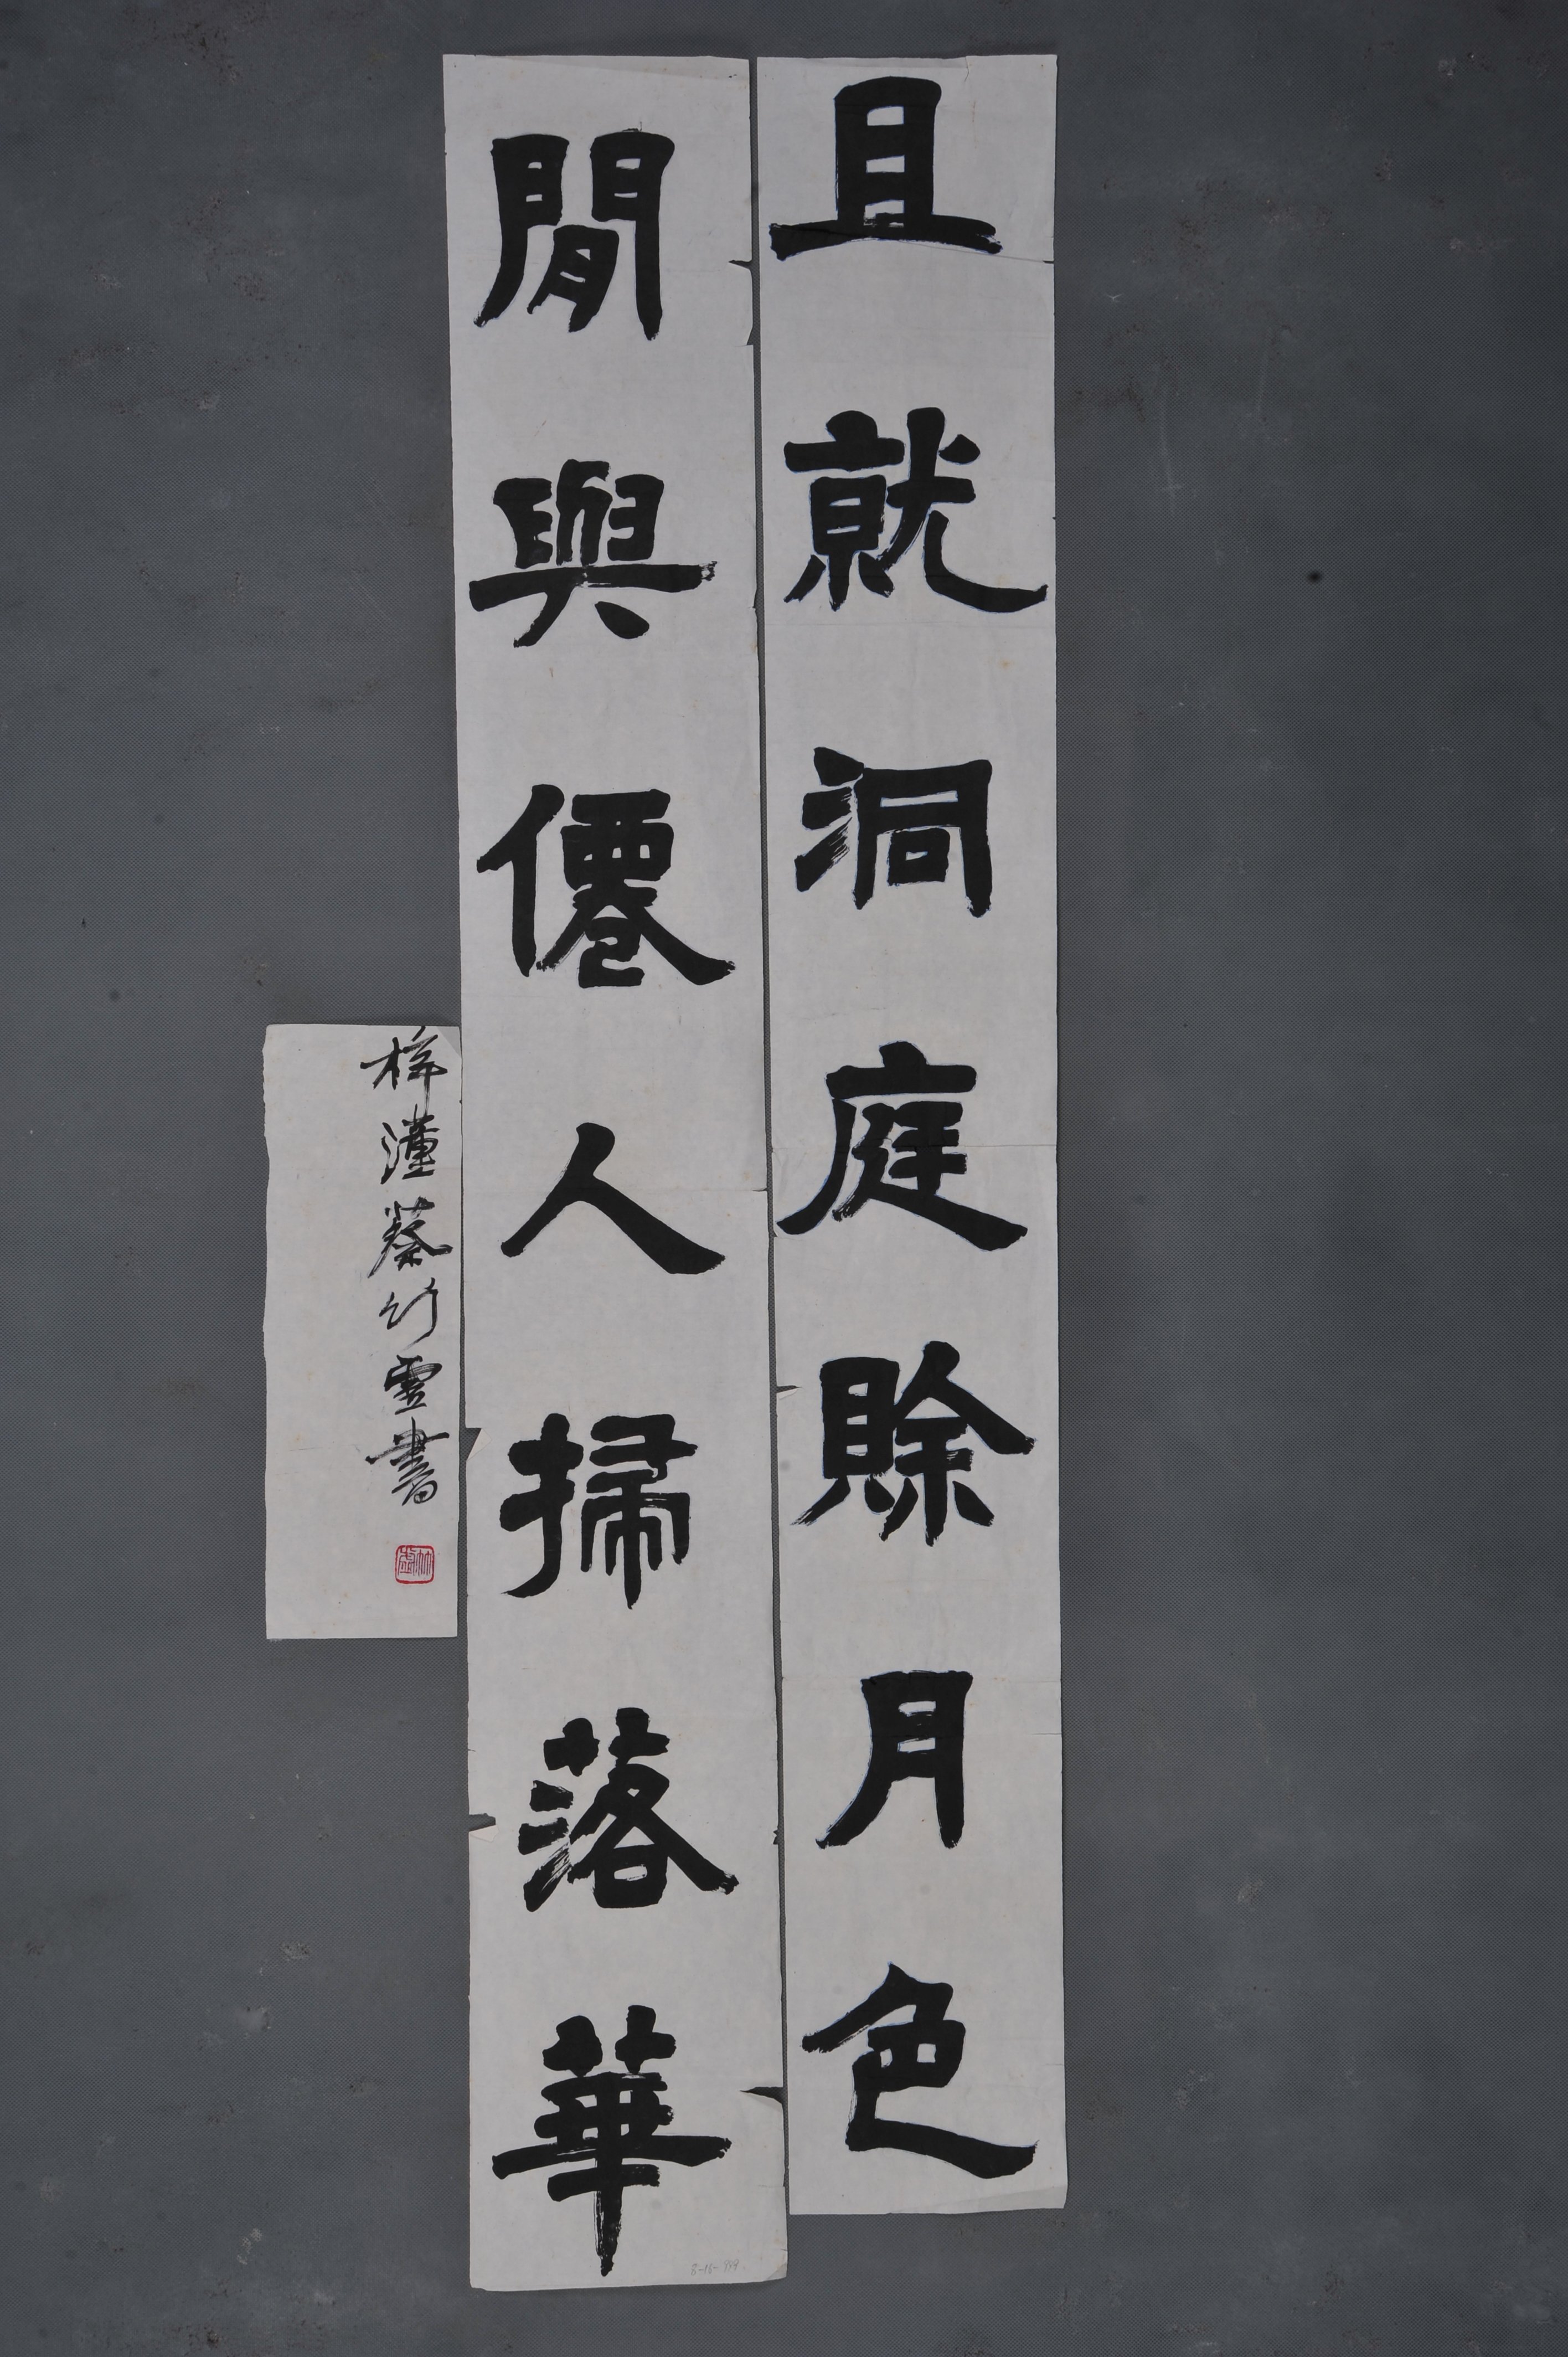 且就洞庭賖月色
閒與僊人掃落華
梓潼蔡竹虛書
竹虛
8-16-959